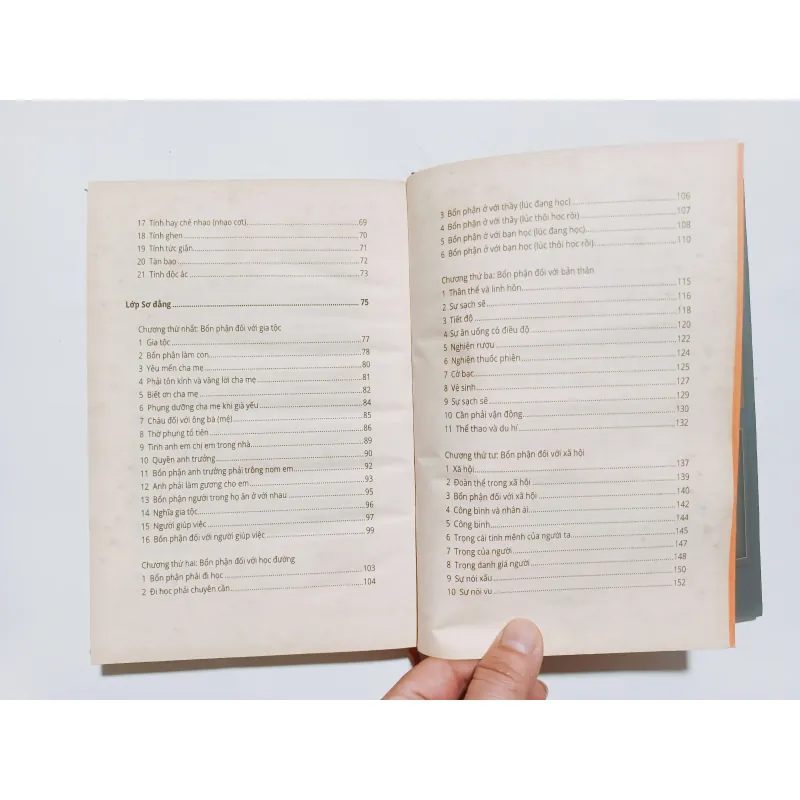 17 Tính hay chế nhạo (nhạo cợt) 69
18 Tính ghen 70
19 Tính tức giận 71
20 Tàn bạo 72
21 Tính độc ác 73
Lớp Sơ đẳng 75
Chương thứ nhất: Bổn phận đối với gia tộc
1 Gia tộc 77
2 Bổn phận làm con 78
3 Yêu mến cha mẹ 80
4 Phải tôn kính và vâng lời cha mẹ 81
5 Biết ơn cha mẹ 82
6 Phụng dưỡng cha mẹ khi già yếu 84
7 Cháu đối với ông bà (mệ) 85
8 Thờ phụng tổ tiên 86
9 Tình anh chị em trong nhà 89
10 Quyền anh trưởng 90
11 Bổn phận anh trưởng phải trông nom em 92
12 Anh phải làm gương cho em 93
13 Bổn phận người trong họ ăn ở với nhau 95
14 Nghĩa gia tộc 96
15 Người giúp việc 97
16 Bổn phận đối với người giúp việc 99
Chương thứ hai: Bổn phận đối với học đường
1 Bổn phận phải đi học 103
2 Đi học phải chuyên cần 104
106
3 Bổn phận ở với thầy (lúc đang học) 107
4 Bổn phận ở với thầy (lúc thôi học rồi) 108
5 Bổn phận ở với bạn học (lúc đang học) 110
6 Bổn phận ở với bạn học (lúc thôi học rồi)
Chương thứ ba: Bổn phận đối với bản thân
1 Thân thể và linh hồn 115
2 Sự sạch sẽ 116
3 Tiết độ 118
4 Sự ăn uống có điều độ 120
5 Nghiện rượu 122
6 Nghiện thuốc phiện 124
7 Cờ bạc 125
8 Vệ sinh 127
9 Sự sạch sẽ 129
10 Cần phải vận động 130
11 Thể thao và du hí 132
Chương thứ tư: Bổn phận đối với xã hội
1 Xã hội 137
2 Đoàn thể trong xã hội 139
3 Bổn phận đối với xã hội 140
4 Công bình và nhân ái 142
5 Công bình 144
6 Trọng cái tính mệnh của người ta 145
7 Trọng của người 147
8 Trọng danh giá người 148
9 Sự nói xấu 150
10 Sự nói vu 152